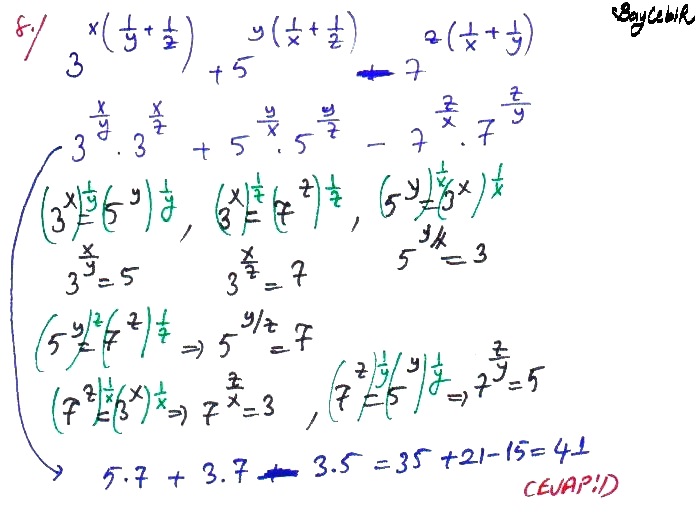 BaycebiR
8-/ 3^{x(1/y + 1/z)} + 5^{y(1/x + 1/z)} - 7^{z(1/x + 1/y)}
3^{x/y} . 3^{x/z} + 5^{y/x} . 5^{y/z} - 7^{z/x} . 7^{z/y}
(3^x)^{1/y} = (5^y)^{1/y} , (3^x)^{1/z} = (7^z)^{1/z} , (5^y)^{1/x} = (3^x)^{1/x}
3^{x/y} = 5 3^{x/z} = 7 5^{y/x} = 3
(5^y)^{1/z} = (7^z)^{1/z} ⇒ 5^{y/z} = 7
(7^z)^{1/x} = (3^x)^{1/x} ⇒ 7^{z/x} = 3 , (7^z)^{1/y} = (5^y)^{1/y} ⇒ 7^{z/y} = 5
5.7 + 3.7 - 3.5 = 35 + 21 - 15 = 41
CEVAP:D